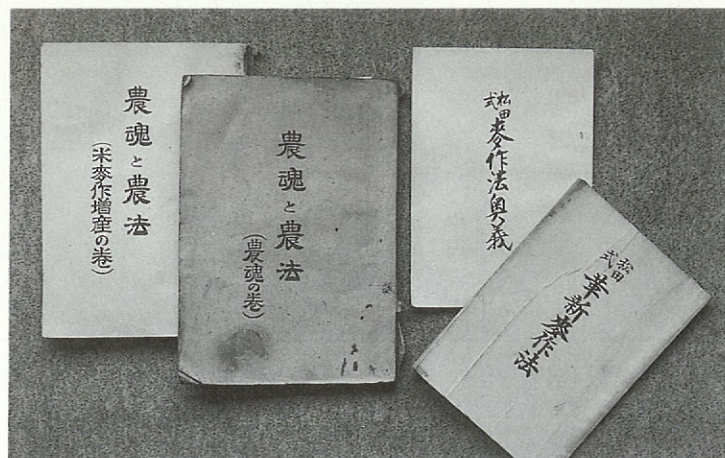 農魂と農法
(米麥作増産の巻)
農魂と農法
(農魂の巻)
松田式
麥作法奥義
松田式
華新麥作法